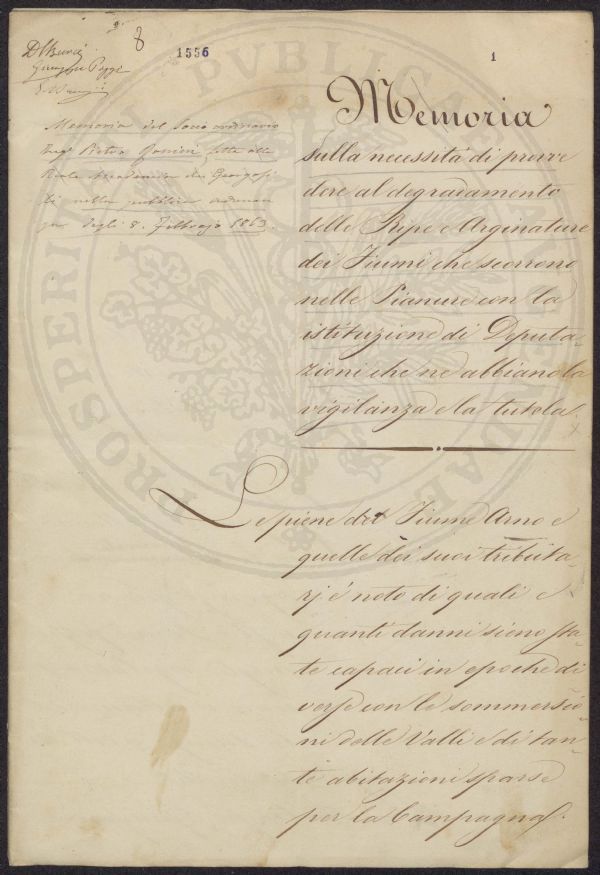 8
1556
1
Giuseppe Poggi
Memoria del Socio ordinario
Pietro fatta alla
Reale Accademia dei Georgofi
li nella pubblica adunan
za degli 8. Febbrajo 1863.
Memoria
sulla necessità di provve
dere al degradamento
delle Ripe e Arginature
dei Fiumi che scorrono
nelle Pianure con la
istituzione di Deputa-
zioni che ne abbiano la
vigilanza e la tutela
Le piene del Fiume Arno e
quelle dei suoi tributa-
rj è noto di quali e
quanti danni sieno sta-
te capaci in epoche di
verse con le sommersio-
ni delle Valli e di tan-
te abitazioni sparse
per la Campagna.
PROSPERITATI PUBLICAE AUGENDAE